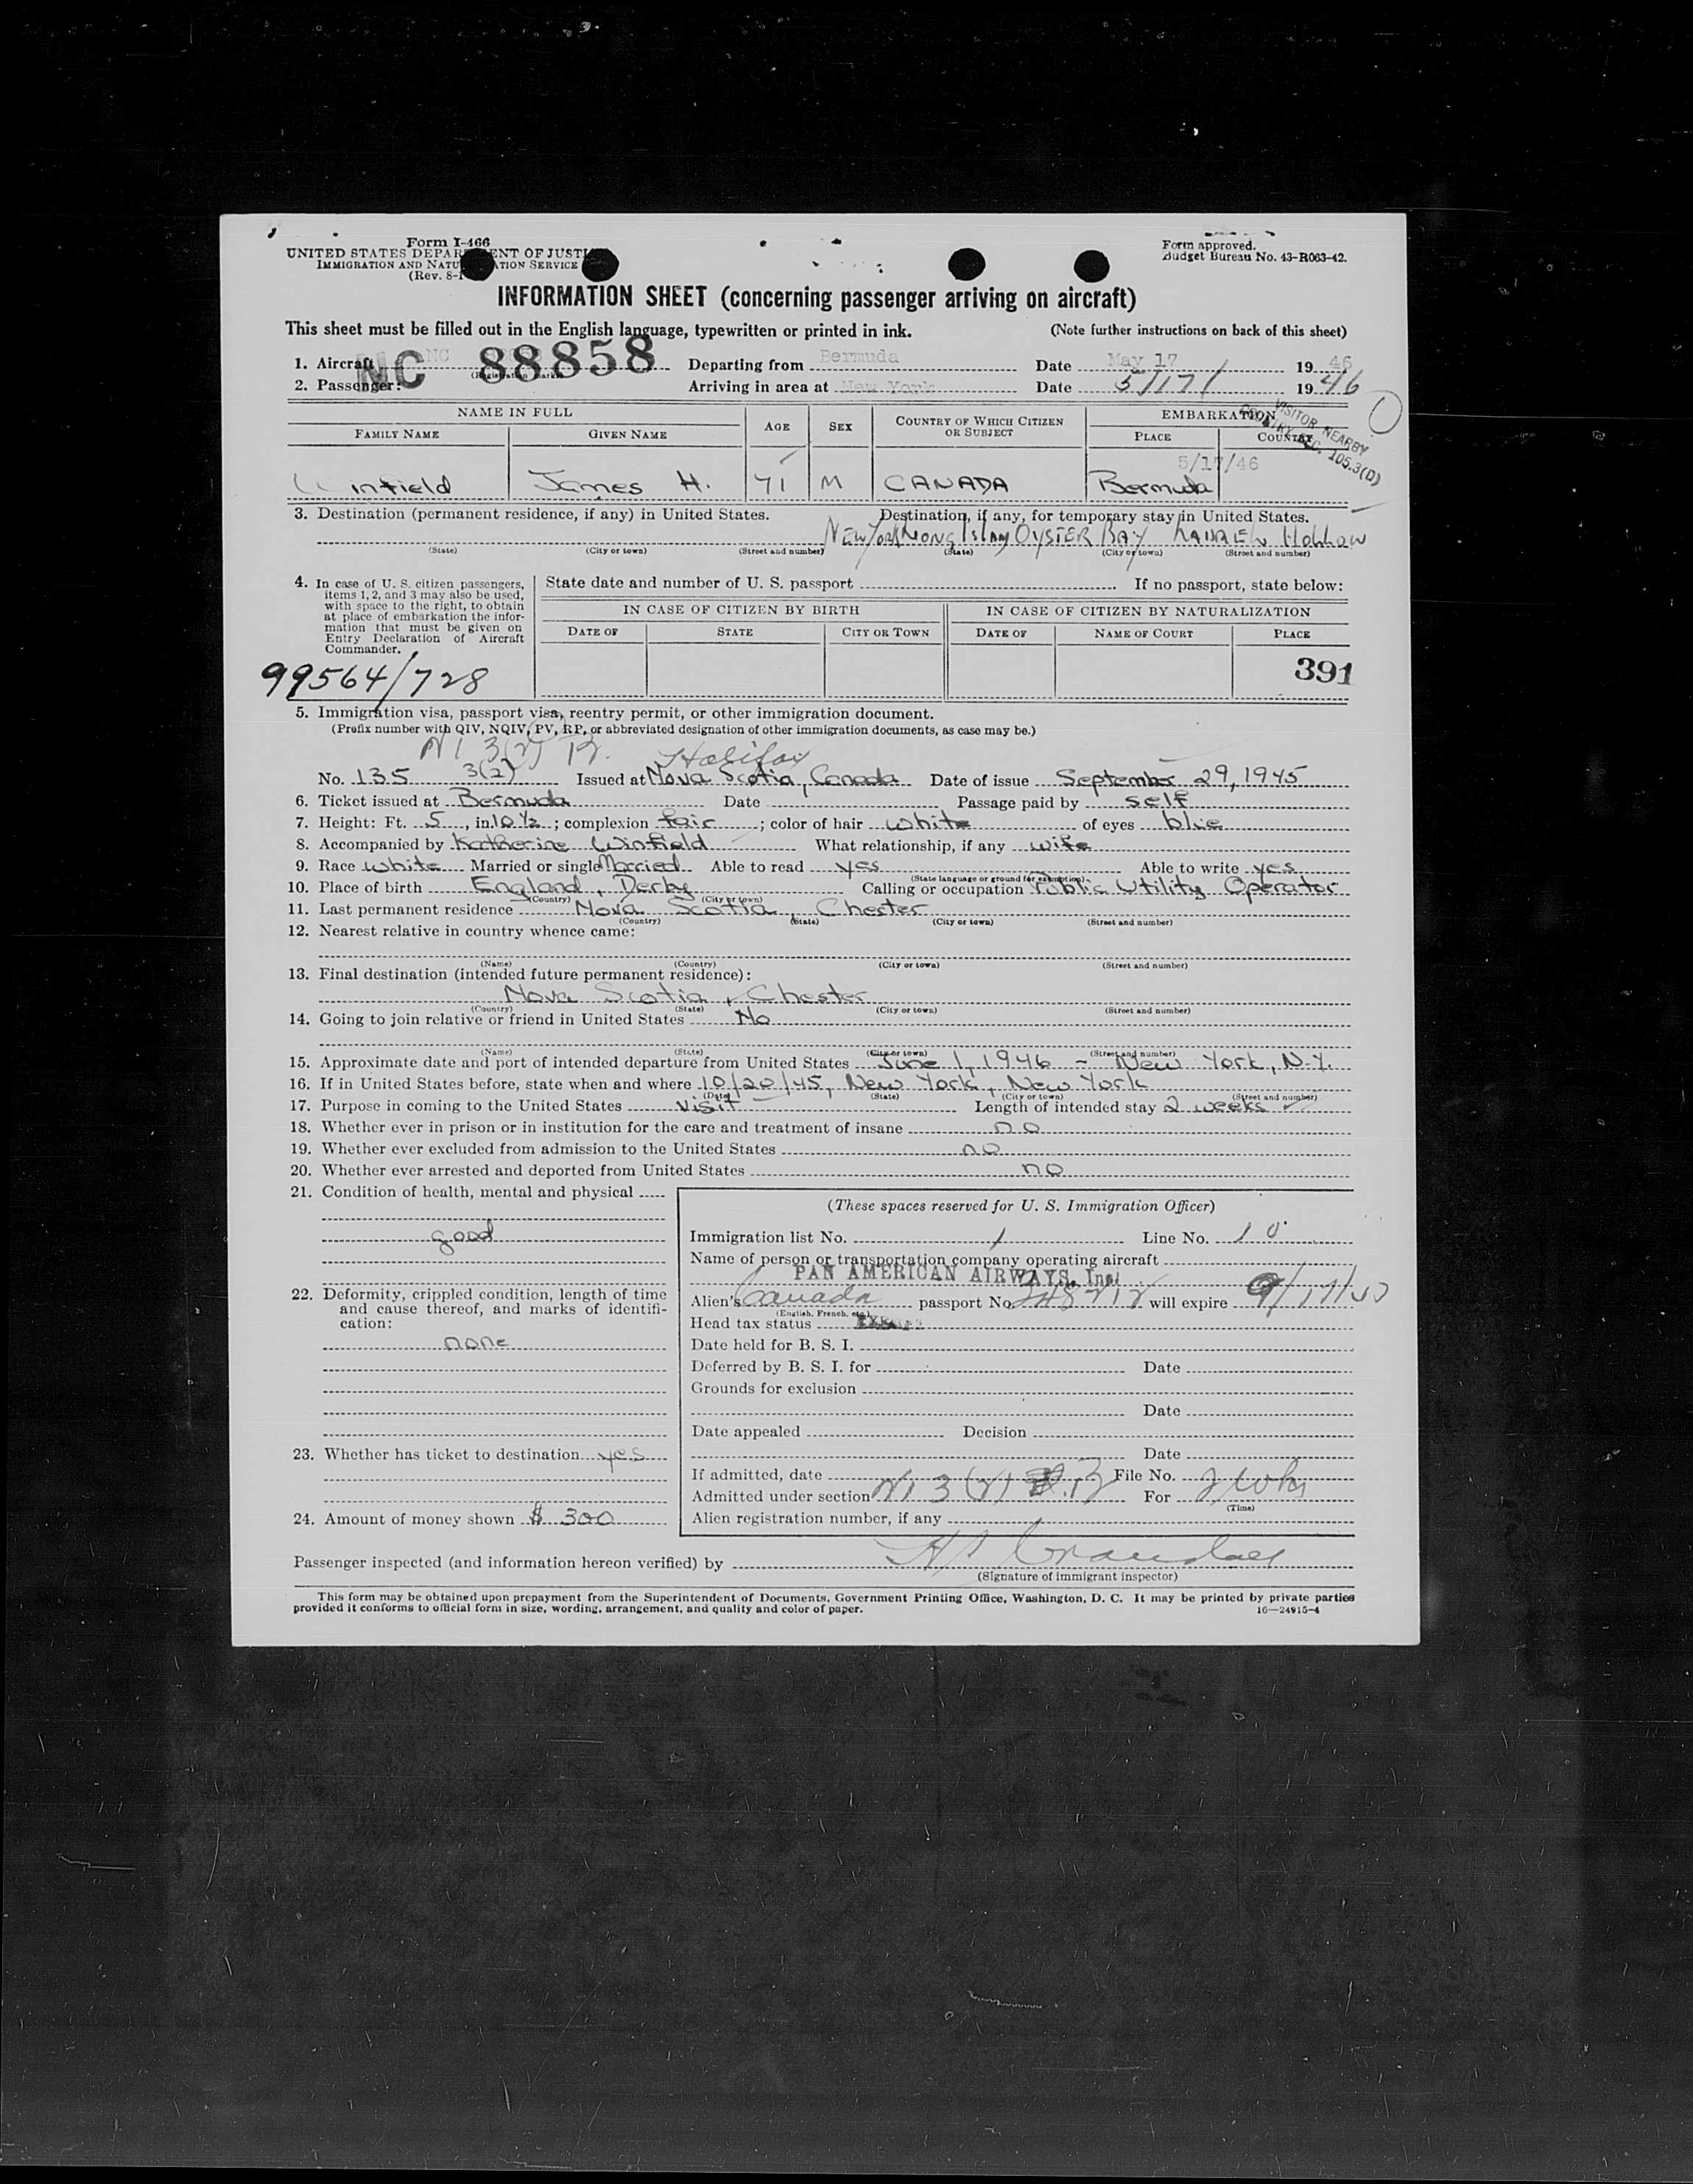 Form I-466
UNITED STATES DEPAR ENT OF JUSTI
IMMIGRATION AND NATU ATION SERVICE
(Rev. 8-1
Form approved.
Budget Bureau No. 43-R063-42.
INFORMATION SHEET (concerning passenger arriving on aircraft)
This sheet must be filled out in the English language, typewritten or printed in ink. (Note further instructions on back of this sheet)
1. Aircraft NC 88858 Departing from Bermuda Date May 17 1946
(Registration marks)
2. Passenger: Arriving in area at New York Date 5/17/ 1946
VISITOR NEARBY
COUNTRY SEC. 105.3(D)
NAME IN FULL AGE SEX COUNTRY OF WHICH CITIZEN OR SUBJECT EMBARKATION
FAMILY NAME GIVEN NAME PLACE COUNTRY
5/17/46
Winfield James H. 71 M CANADA Bermuda
3. Destination (permanent residence, if any) in United States. Destination, if any, for temporary stay in United States.
New York Long Island OYSTER BAY LAUREL Hollow
(State) (City or town) (Street and number) (State) (City or town) (Street and number)
4. In case of U. S. citizen passengers, items 1, 2, and 3 may also be used, with space to the right, to obtain at place of embarkation the information that must be given on Entry Declaration of Aircraft Commander.
State date and number of U. S. passport If no passport, state below:
IN CASE OF CITIZEN BY BIRTH IN CASE OF CITIZEN BY NATURALIZATION
DATE OF STATE CITY OR TOWN DATE OF NAME OF COURT PLACE
391
99564/728
5. Immigration visa, passport visa, reentry permit, or other immigration document.
(Prefix number with QIV, NQIV, PV, RP, or abbreviated designation of other immigration documents, as case may be.)
Halifax
No. 135 3(2) Issued at Nova Scotia, Canada Date of issue September 29, 1945
6. Ticket issued at Bermuda Date Passage paid by self
7. Height: Ft. 5, in. 10 1/2; complexion fair; color of hair white of eyes blue
8. Accompanied by Katherine Winfield What relationship, if any wife
9. Race White Married or single Married Able to read yes Able to write yes
(State language or ground for exemption)
10. Place of birth England, Derby Calling or occupation Public Utility Operator
(Country) (City or town)
11. Last permanent residence Nova Scotia, Chester
(Country) (State) (City or town) (Street and number)
12. Nearest relative in country whence came:
(Name) (Country) (City or town) (Street and number)
13. Final destination (intended future permanent residence):
Nova Scotia, Chester
(Country) (State) (City or town) (Street and number)
14. Going to join relative or friend in United States No
(Name) (State) (City or town) (Street and number)
15. Approximate date and port of intended departure from United States June 1, 1946 - New York, N.Y.
16. If in United States before, state when and where 10/20/45, New York, New York
(Date) (State) (City or town) (Street and number)
17. Purpose in coming to the United States Visit Length of intended stay 2 weeks
18. Whether ever in prison or in institution for the care and treatment of insane no
19. Whether ever excluded from admission to the United States no
20. Whether ever arrested and deported from United States no
21. Condition of health, mental and physical
good
22. Deformity, crippled condition, length of time and cause thereof, and marks of identification:
none
23. Whether has ticket to destination yes
24. Amount of money shown $ 300
(These spaces reserved for U. S. Immigration Officer)
Immigration list No. 1 Line No. 10
Name of person or transportation company operating aircraft
PAN AMERICAN AIRWAYS, Inc.
Alien's Canada passport No. will expire
(English, French, etc.)
Head tax status
Date held for B. S. I.
Deferred by B. S. I. for Date
Grounds for exclusion
Date
Date appealed Decision
Date
If admitted, date File No.
Admitted under section For 2 wks
(Time)
Alien registration number, if any
Passenger inspected (and information hereon verified) by
(Signature of immigrant inspector)
This form may be obtained upon prepayment from the Superintendent of Documents, Government Printing Office, Washington, D. C. It may be printed by private parties
provided it conforms to official form in size, wording, arrangement, and quality and color of paper. 16—24915-4